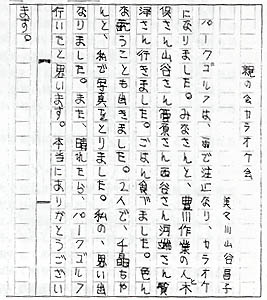 親の会カラオケ会
美々川山谷昌子
パークゴルフは、雨で注止なり、カラオケ
になりました。みなさんと、豊川作業の人と木
保さん山谷さん菅原さん西谷さん河端さん賀
沢さん行きました。ごはん食でました。色ん
な歌うことも出きました。2人で、千晶ちゃ
んと、私で写真をとりました。私の、思い出
なりました。また、晴れたら、パークゴルフ
行いたと思います。本当にありがとうござい
ます。